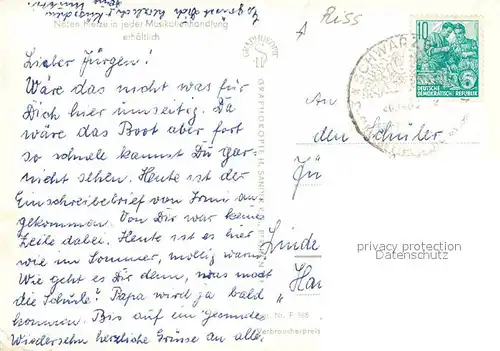 Noten
in jeder Musikalienhandlung
erhältlich
Lieber Jürgen!
Wäre das nicht was für
Dich hier umseitig. Da
wäre das Boot aber fort
so schnell kannst Du gar-
nicht sehen. Heute ist der
Einschreibebrief von Irmi an-
gekommen. Von Dir war keine
Zeile dabei. Heute ist es hier
wie im Sommer, mollig warm.
Wie geht es Dir denn, was macht
die Schule? Papa wird ja bald
kommen. Bis auf ein gesundes
Wiedersehn herzliche Grüsse an alle.
GRAPHOKOPIE H. SANDER
Nr. F 568
Verbraucherpreis
R155
SCHWARZ
10
DEUTSCHE
DEMOKRATISCHE REPUBLIK
An
den Schüler
Jü
Linde
Ha
privacy protection
Datenschutz